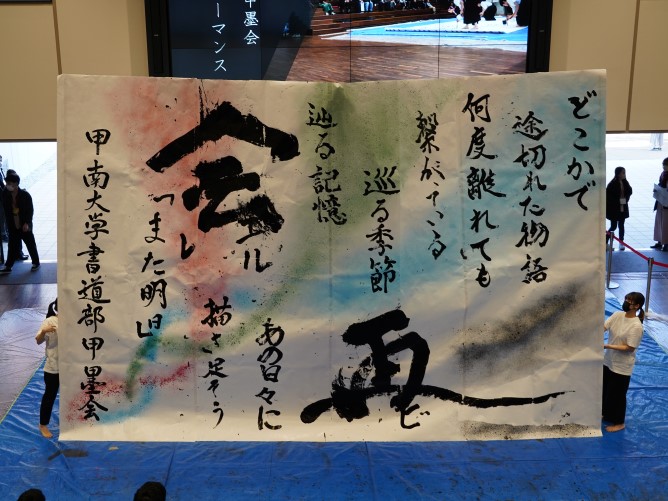 墨会
ーマンス
どこかで
途切れた物語
何度離れても
繋がっている
巡る季節
再ビ
辿る記憶
あの日々に
描き足そう
会エル
「また明日」
甲南大学書道部甲墨会